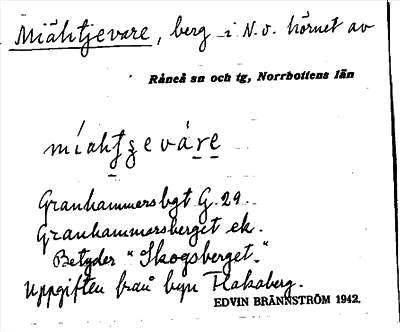 Miähtjevare, berg i N.v. hörnet av
Råneå sn och tg, Norrbottens län
míahtʒevàre
Granhammersbgt G. 29.
Granhammersberget ek.
Betyder "Skogsberget."
Uppgiften från byn Flakaberg.
EDVIN BRÄNNSTRÖM 1942.